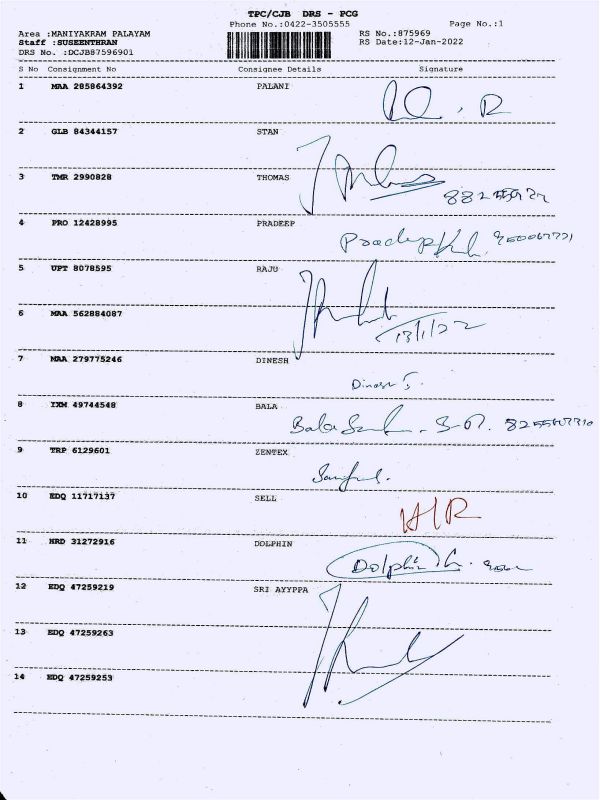 TPC/CJB DRS - PCG
Phone No.:0422-3505555 Page No.:1
Area :MANIYAKRAM PALAYAM RS No.:875969
Staff :SUSEENTHRAN RS Date:12-Jan-2022
DRS No. :DCJB87596901
S No Consignment No Consignee Details Signature
1 MAA 285864392 PALANI
2 GLB 84344157 STAN
3 TMR 2990828 THOMAS
4 PRO 12428995 PRADEEP
Pradeep
5 UPT 8078595 RAJU
6 MAA 562884087
13/1/22
7 MAA 279775246 DINESH
Dinesh
8 YXM 49744548 BALA
Bala
9 TRP 6129601 ZENTEX
10 EDQ 11717137 SELL
11 HRD 31272916 DOLPHIN
Dolphin
12 EDQ 47259219 SRI AYYPPA
13 EDQ 47259263
14 EDQ 47259253